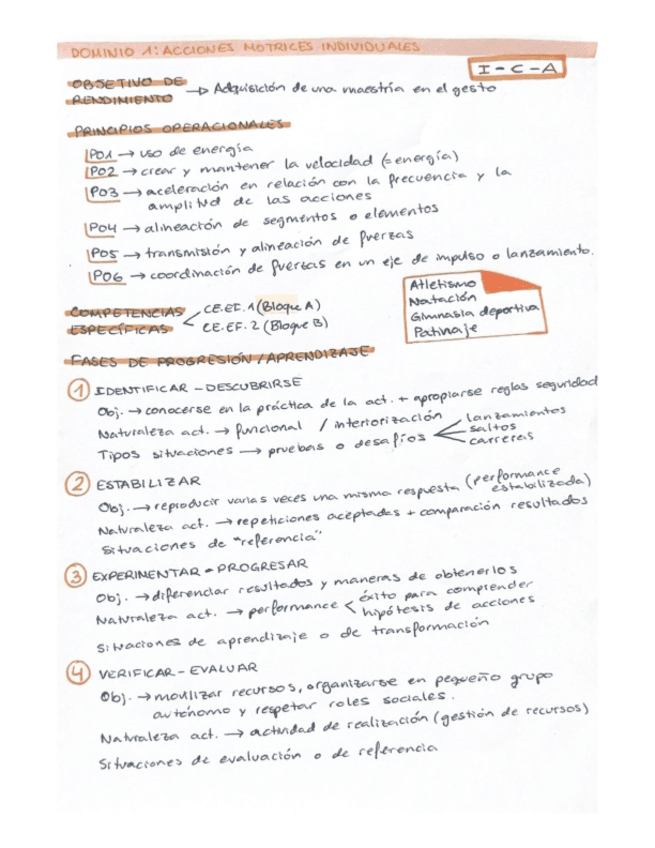 DOMINIO 1: ACCIONES MOTRICES INDIVIDUALES
I - C - A
OBJETIVO DE
RENDIMIENTO → Adquisición de una maestría en el gesto
PRINCIPIOS OPERACIONALES
PO1 → uso de energía
PO2 → crear y mantener la velocidad (= energía)
PO3 → aceleración en relación con la frecuencia y la
amplitud de las acciones
PO4 → alineación de segmentos o elementos
PO5 → transmisión y alineación de fuerzas
PO6 → coordinación de fuerzas en un eje de impulso o lanzamiento.
Atletismo
Natación
Gimnasia deportiva
Patinaje
COMPETENCIAS
ESPECÍFICAS
CE.EF. 1 (Bloque A)
CE.EF. 2 (Bloque B)
FASES DE PROGRESIÓN / APRENDIZAJE
1 IDENTIFICAR - DESCUBRIRSE
Obj. → conocerse en la práctica de la act. + apropiarse reglas seguridad
Naturaleza act. → funcional / interiorización
Tipos situaciones → pruebas o desafíos
lanzamientos
saltos
carreras
2 ESTABILIZAR
Obj. → reproducir varias veces una misma respuesta (performance
estabilizada)
Naturaleza act. → repeticiones aceptadas + comparación resultados
Situaciones de "referencia"
3 EXPERIMENTAR - PROGRESAR
Obj. → diferenciar resultados y maneras de obtenerlos
Naturaleza act. → performance < éxito para comprender
hipótesis de acciones
Situaciones de aprendizaje o de transformación
4 VERIFICAR - EVALUAR
Obj. → movilizar recursos, organizarse en pequeño grupo
autónomo y respetar roles sociales.
Naturaleza act. → actividad de realización (gestión de recursos)
Situaciones de evaluación o de referencia